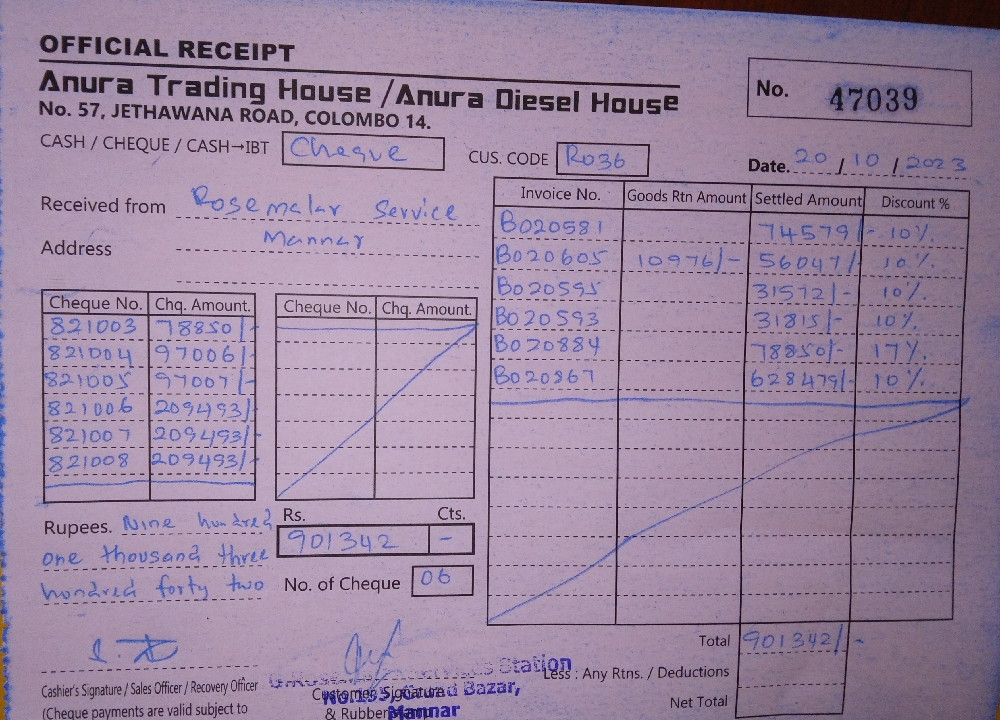 OFFICIAL RECEIPT
Anura Trading House / Anura Diesel House
No. 57, JETHAWANA ROAD, COLOMBO 14.
No. 47039
CASH / CHEQUE / CASH→IBT Cheque
CUS. CODE R036
Date. 20 / 10 / 2023
Received from Rosemalar Service
Address Mannar
Invoice No. Goods Rtn Amount Settled Amount Discount %
B020581 74579/- 10%
B020605 10976/- 56047/- 10%
B020595 31572/- 10%
B020593 31815/- 10%
B020884 78850/- 17%
B020867 628479/- 10%
Cheque No. Chq. Amount. Cheque No. Chq. Amount.
821003 78850/-
821004 97006/-
821005 97007/-
821006 209493/-
821007 209493/-
821008 209493/-
Rupees. Nine hundred
one thousand three
hundred forty two
Rs. Cts.
901342 -
No. of Cheque 06
Total 901342/-
Less : Any Rtns. / Deductions
Net Total
Cashier's Signature / Sales Officer / Recovery Officer
(Cheque payments are valid subject to
Customer Signature
& Rubber
Station
Bazar,
Mannar